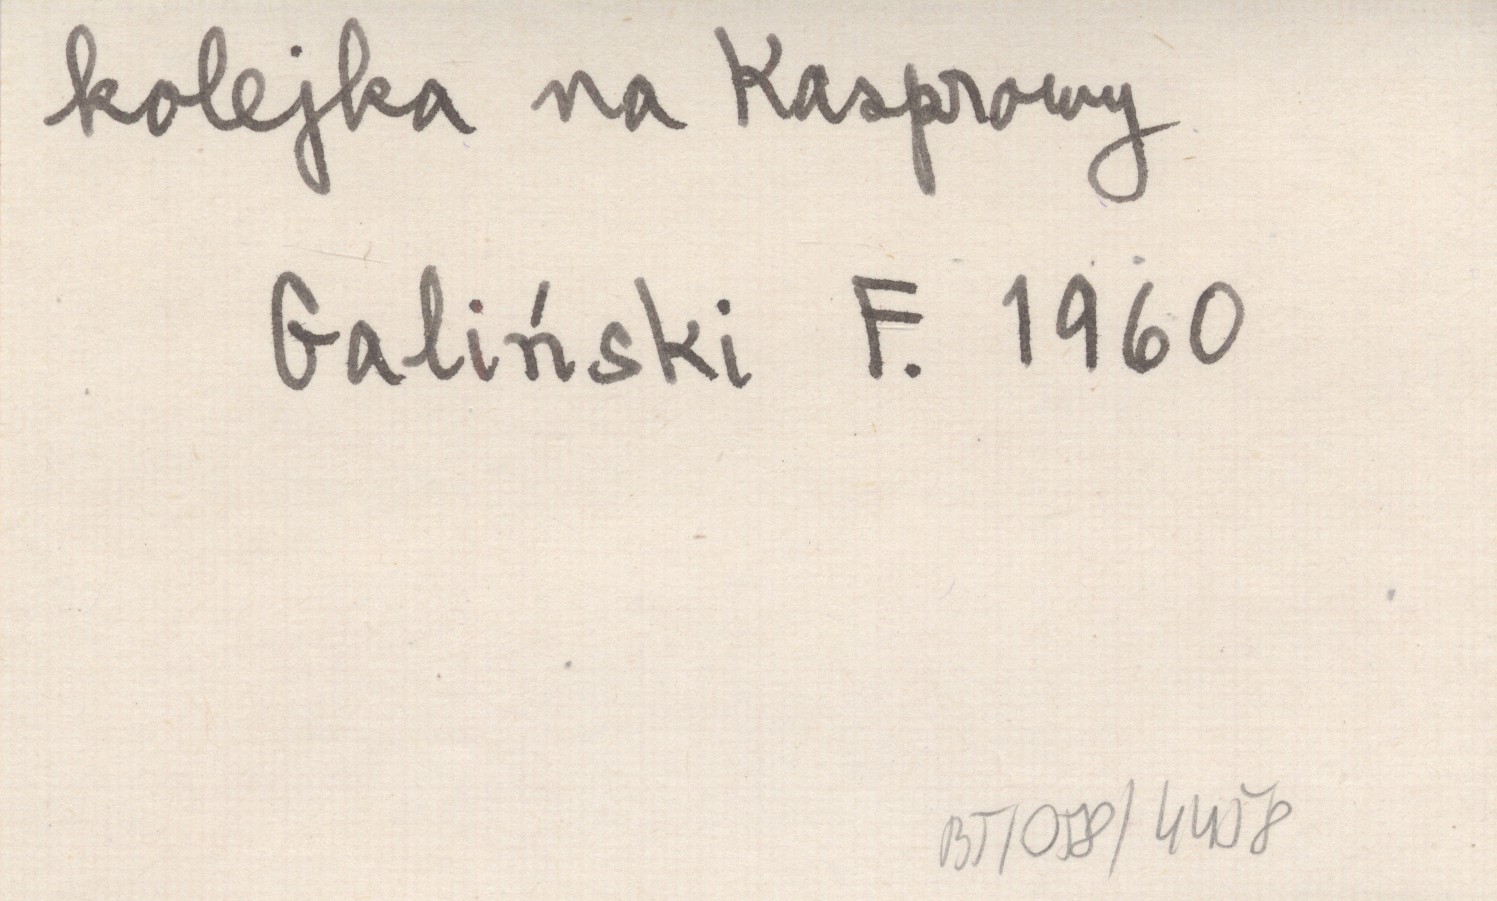 kolejka na Kasprowy
Galiński F. 1960
BT/058/4458